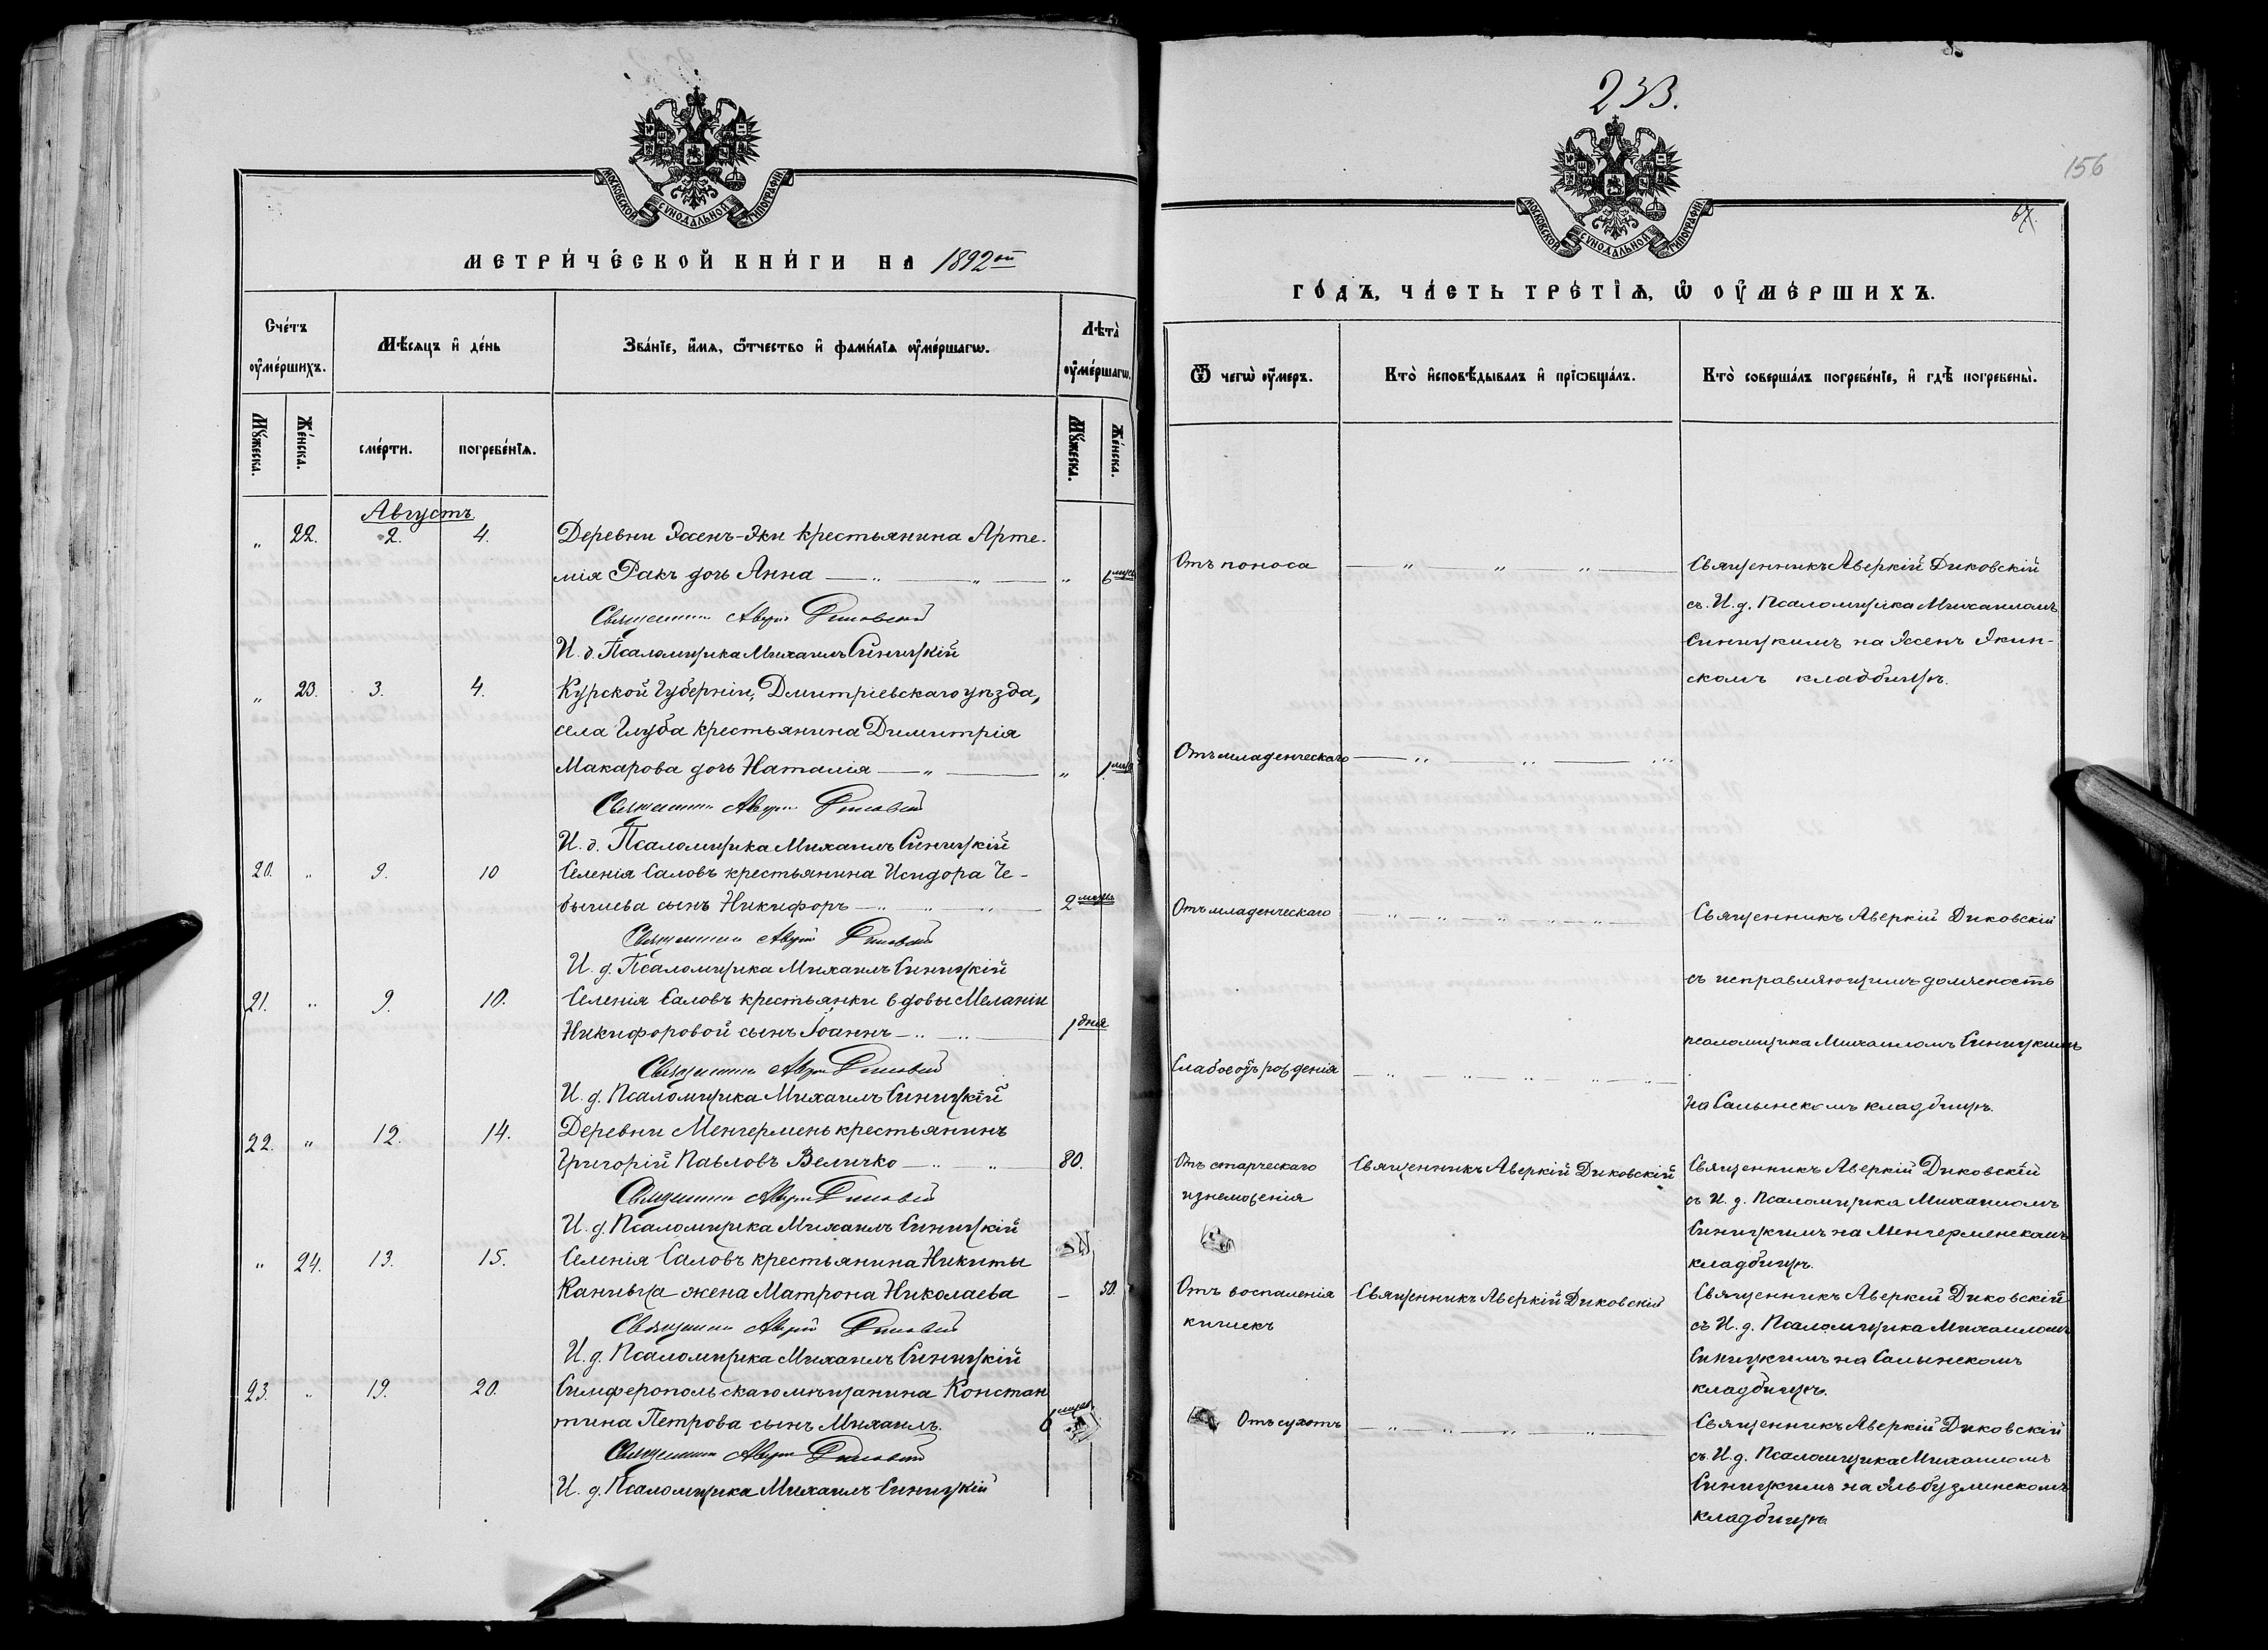 МОСКОВСКОЙ СѴНОДАЛЬНОЙ ТИПОГРАФІИ
МЕТРИ́ЧЕСКОЙ КНИ́ГИ НА 1892ой
Сче́тъ ᲂу҆ме́ршихъ.
Мѣ́сяцъ и҆ де́нь
Зва́нїе, и҆́мѧ, ѻ҆́тчество и҆ фами́лїѧ ᲂу҆ме́ршагѡ.
Лѣ́та ᲂу҆ме́ршагѡ.
Мꙋ́жеска.
Же́нска.
сме́рти.
погребе́нїѧ.
Мꙋ́жеска.
Же́нска.
Августъ.
„ 22. 2. 4. Деревни Эсенъ-Эки крестьянина Арте-
мія Ракъ дочь Анна — „ — „ — „ 6 мцев
Священник Аверкій Диковскій
И. д. Псаломщика Михаилъ Синицкій
„ 23. 3. 4. Курской Губерніи, Дмитріевскаго уѣзда,
села Глуба крестьянина Димитрія
Макарова дочь Наталія — „ — „ 1 мца
Священник Аверкій Диковскій
И. д. Псаломщика Михаилъ Синицкій
20. „ 9. 10 Селенія Саловъ крестьянина Исидора Че-
бычева сынъ Никифоръ — „ „ „ — 2 мцевъ
Священник Аверкій Диковскій
И. д. Псаломщика Михаилъ Синицкій
21. „ 9. 10. Селенія Саловъ крестьянки вдовы Меланіи
Никифоровой сынъ Іоаннъ — „ — „ — 1 дня
Священник Аверкій Диковскій
И. д. Псаломщика Михаилъ Синицкій
22. „ 12. 14. Деревни Менгермень крестьянинъ
Григорій Павловъ Величко — „ „ 80.
Священник Аверкій Диковскій
И. д. Псаломщика Михаилъ Синицкій
„ 24. 13. 15. Селенія Саловъ крестьянина Никиты
Канивца жена Матрона Николаева — 50.
Священник Аверкій Диковскій
И. д. Псаломщика Михаилъ Синицкій
23. „ 19. 20. Симферопольскаго мѣщанина Констан
тина Петрова сынъ Михаилъ. 6 мцев
Священник Аверкій Диковскій
И. д. Псаломщика Михаилъ Синицкій
233.
156
67.
МОСКОВСКОЙ СѴНОДАЛЬНОЙ ТИПОГРАФІИ
ГО́ДЪ, ЧА́СТЬ ТРЕ́ТЇѦ, Ѡ҆ ОУ҆МЕ́РШИХЪ.
Ѿ чегѡ̀ ᲂу҆́меръ.
Кто̀ и҆сповѣ́дывалъ и҆ прїѡбща́лъ.
Кто̀ соверша́лъ погребе́нїе, и҆ гдѣ̀ погребены̀.
Отъ поноса — „ — „ — „ — Священникъ Аверкій Диковскій
съ И. д. Псаломщика Михаиломъ
Синицкимъ на Эсенъ Экин-
скомъ кладбищѣ.
Отъ младенческаго — „ — „ — „
Отъ младенческаго — „ — „ — „ — „ — Священникъ Аверкій Диковскій
съ исправляющимъ должность
псаломщика Михаиломъ Синицкимъ
Слабое отъ рожденія — „ — „ — „ — „ —
на Салынскомъ кладбищѣ.
Отъ старческаго Священникъ Аверкій Диковскій Священникъ Аверкій Диковскій
изнеможенія съ И. д. Псаломщика Михаиломъ
Синицкимъ на Менгерменскомъ
кладбищѣ.
Отъ воспаленія Священникъ Аверкій Диковскій Священникъ Аверкій Диковскій
кишекъ съ И. д. Псаломщика Михаиломъ
Синицкимъ на Салынскомъ
кладбищѣ.
Отъ сухотъ — „ — „ — „ — „ — Священникъ Аверкій Диковскій
съ И. д. Псаломщика Михаиломъ
Синицкимъ на Яльбузлинскомъ
кладбищѣ